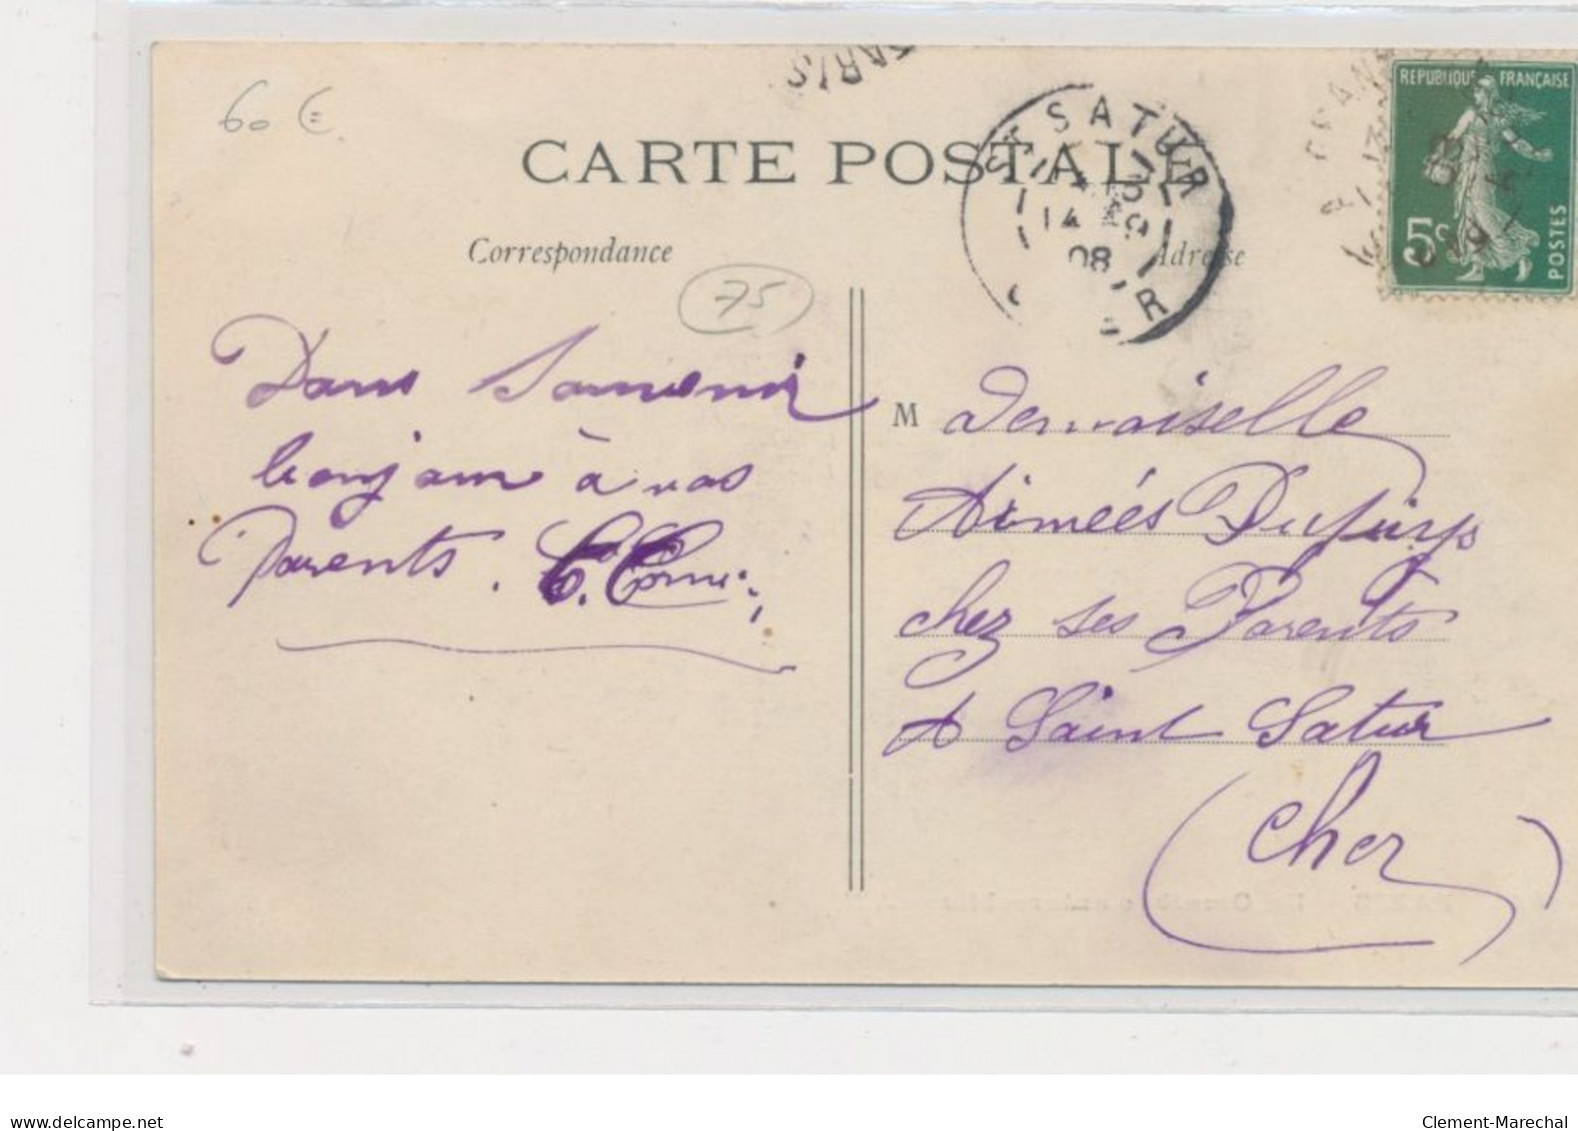 60 €
PARIS
CARTE POSTALE
ST SATUR
14
08
REPUBLIQUE FRANÇAISE
5c
POSTES
Correspondance
Adresse
75
Dans Souvenir
bonjour à vos
Parents.
M ademoiselle
Aimées Dufuips
chez ses Parents
A Saint Satur
(Cher)
www.delcampe.net
Clement-Marechal